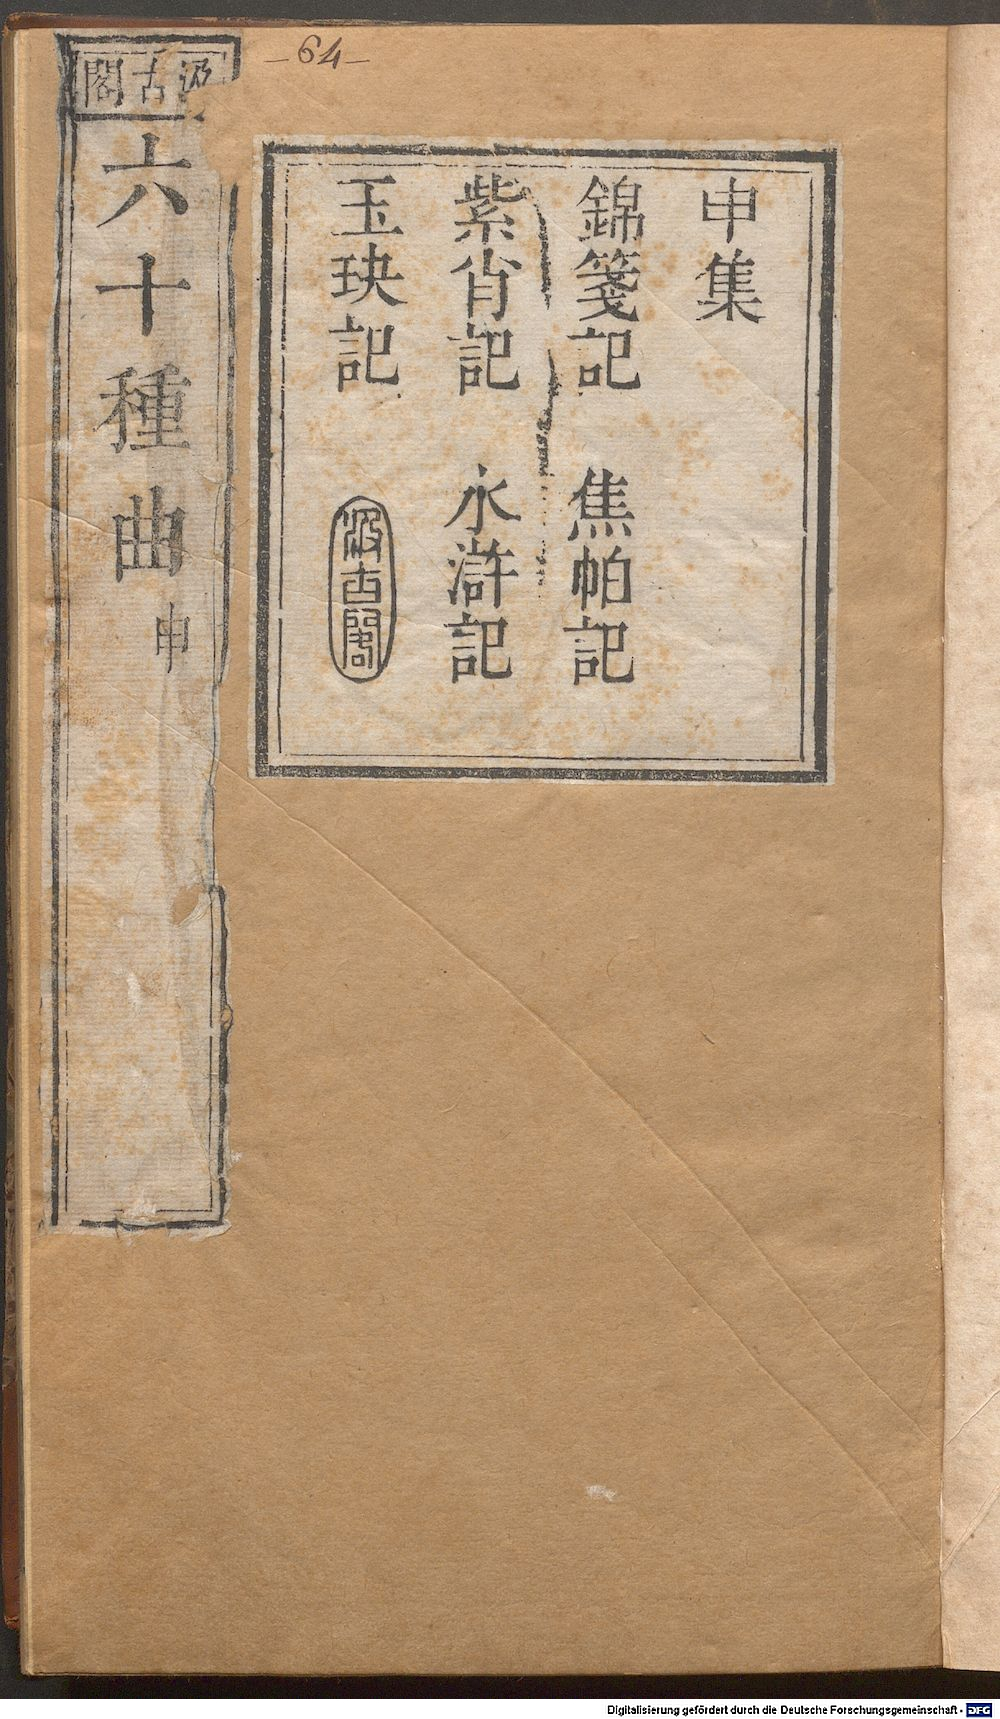 -64-
汲古閣
六十種曲 申
申集
錦箋記 焦帕記
紫肖記 水滸記
玉玦記 汲古閣
Digitalisierung gefördert durch die Deutsche Forschungsgemeinschaft - DFG